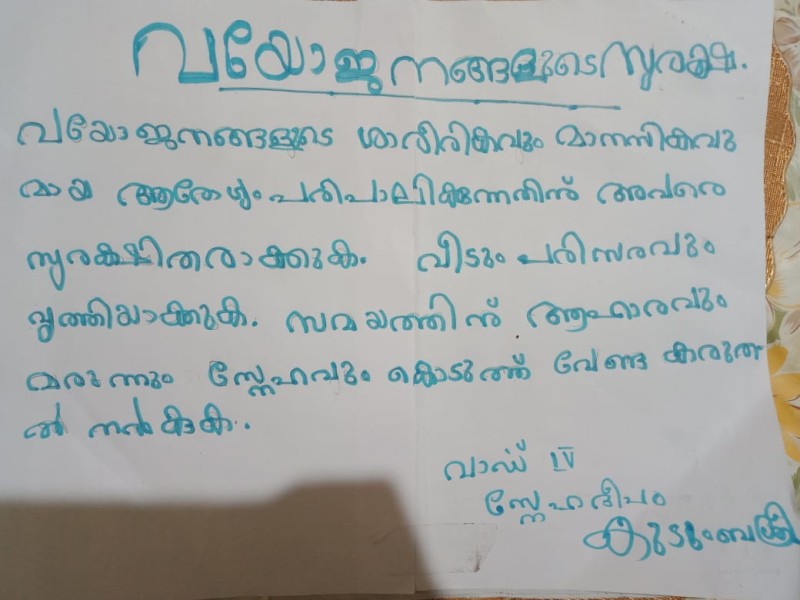 വയോജനങ്ങളുടെ സുരക്ഷ.
വയോജനങ്ങളുടെ ശാരീരികവും മാനസികവു
മായ ആരോഗ്യം പരിപാലിക്കുന്നതിന് അവരെ
സുരക്ഷിതരാക്കുക. വീടും പരിസരവും
വൃത്തിയാക്കുക. സമയത്തിന് ആഹാരവും
മരുന്നും സ്നേഹവും കൊടുത്ത് വേണ്ട കരുത
ൽ നൽകുക.
വാർഡ് IV
സ്നേഹദീപം
കുടുംബശ്രീ